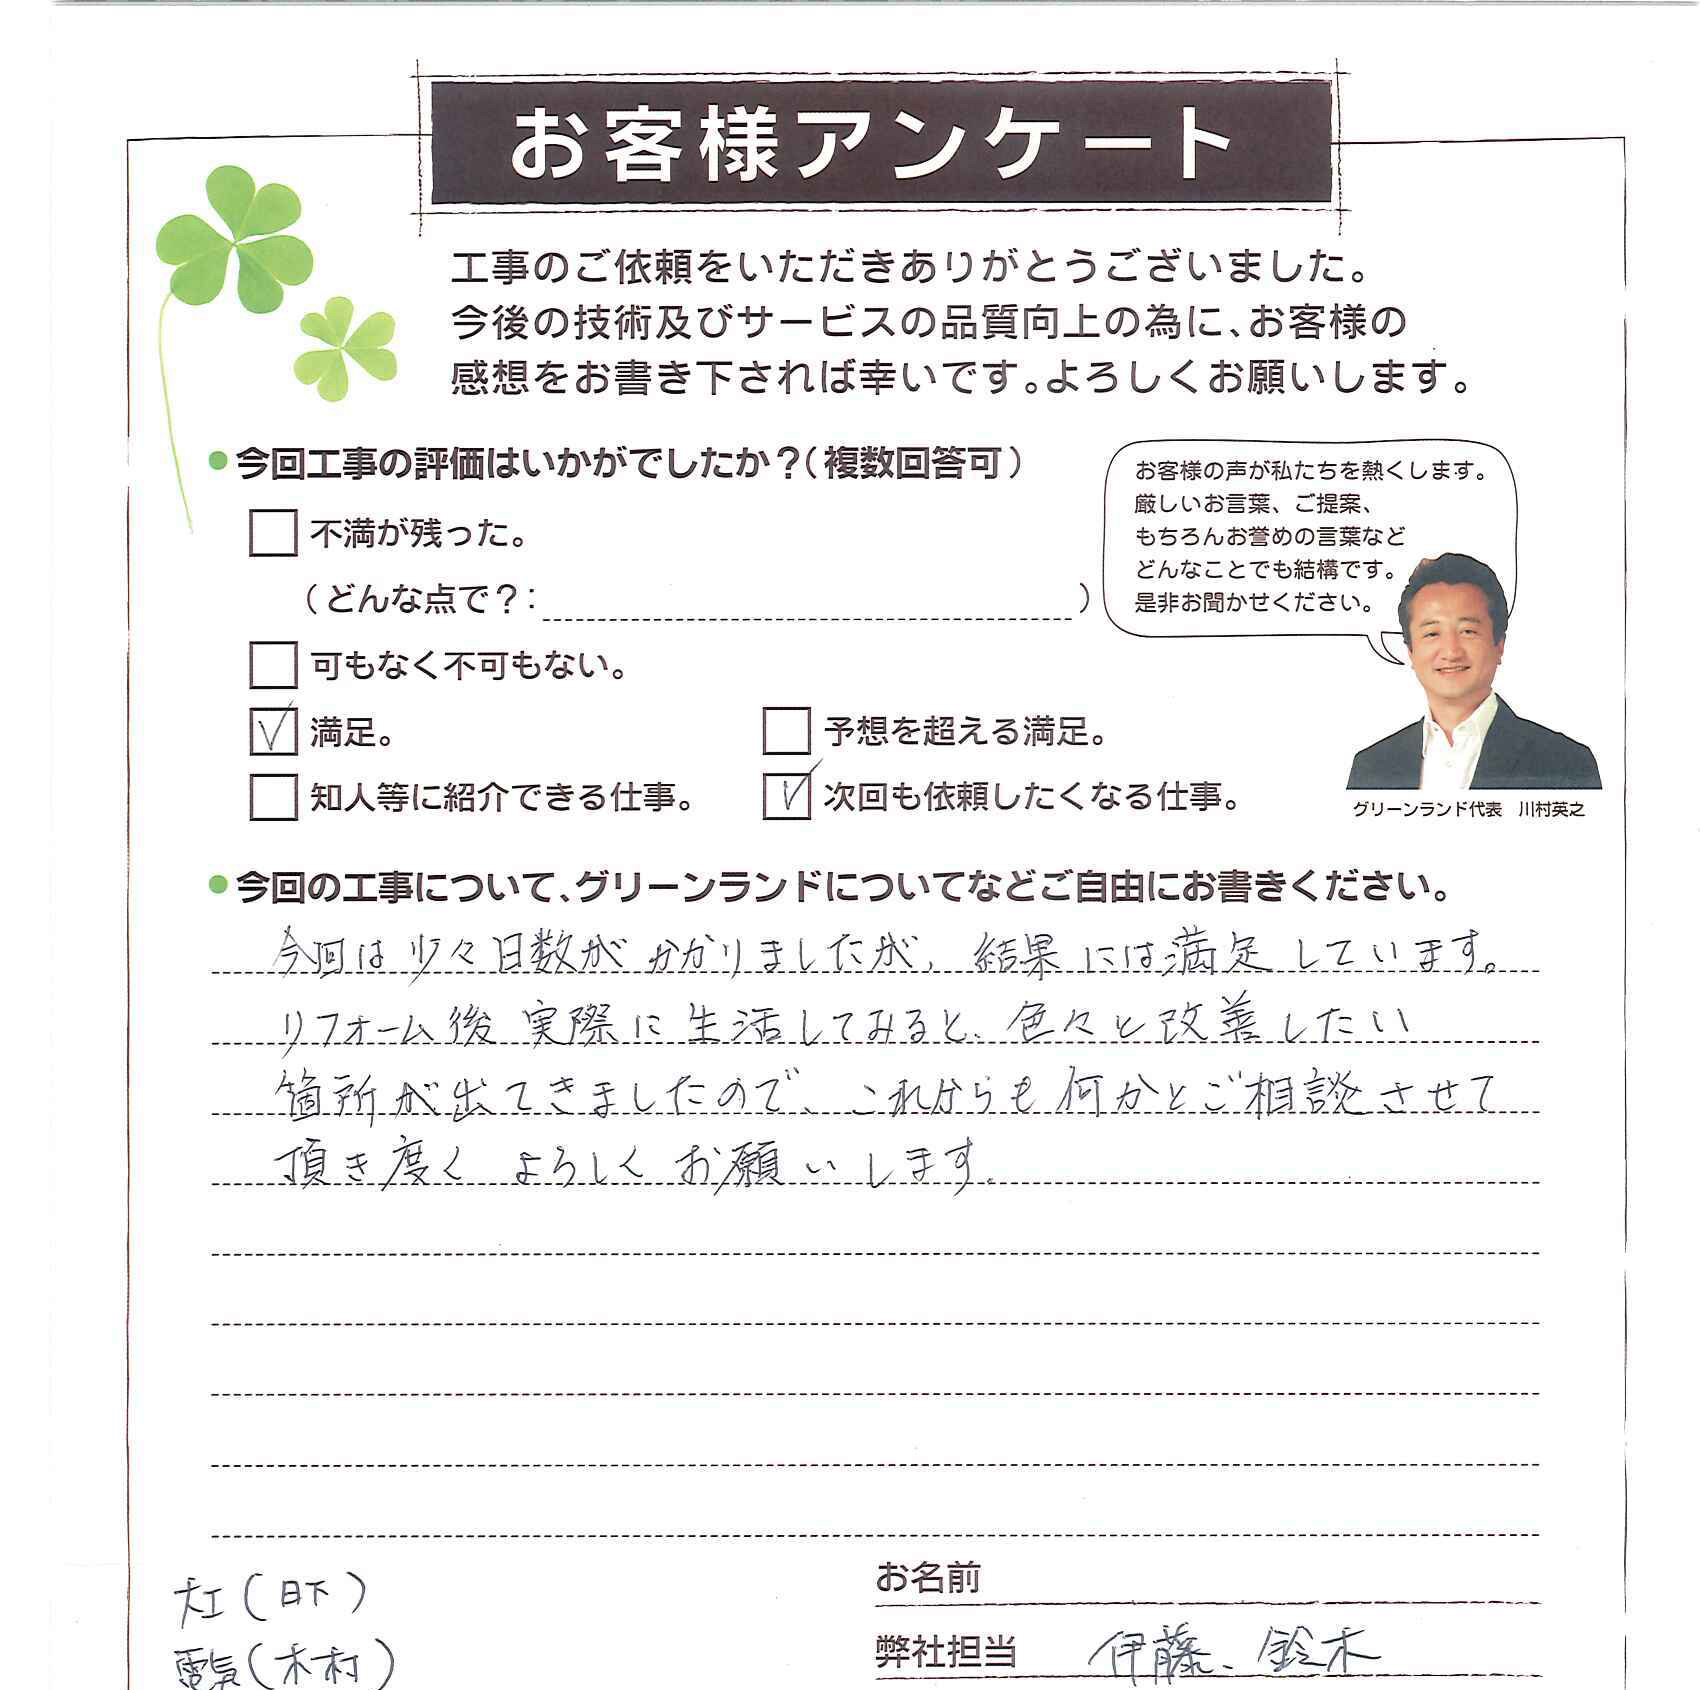 お客様アンケート
工事のご依頼をいただきありがとうございました。
今後の技術及びサービスの品質向上の為に、お客様の
感想をお書き下されば幸いです。よろしくお願いします。
今回工事の評価はいかがでしたか?(複数回答可)
不満が残った。
(どんな点で?: )
可もなく不可もない。
満足。
予想を超える満足。
知人等に紹介できる仕事。
次回も依頼したくなる仕事。
お客様の声が私たちを熱くします。
厳しいお言葉、ご提案、
もちろんお誉めの言葉など
どんなことでも結構です。
是非お聞かせください。
グリーンランド代表 川村英之
今回の工事について、グリーンランドについてなどご自由にお書きください。
今回は少々日数がかかりましたが、結果には満足しています。
リフォーム後実際に生活してみると、色々と改善したい
箇所が出てきましたので、これからも何かとご相談させて
頂き度くよろしくお願いします。
大工(日下)
電気(木村)
お名前
弊社担当 伊藤、鈴木